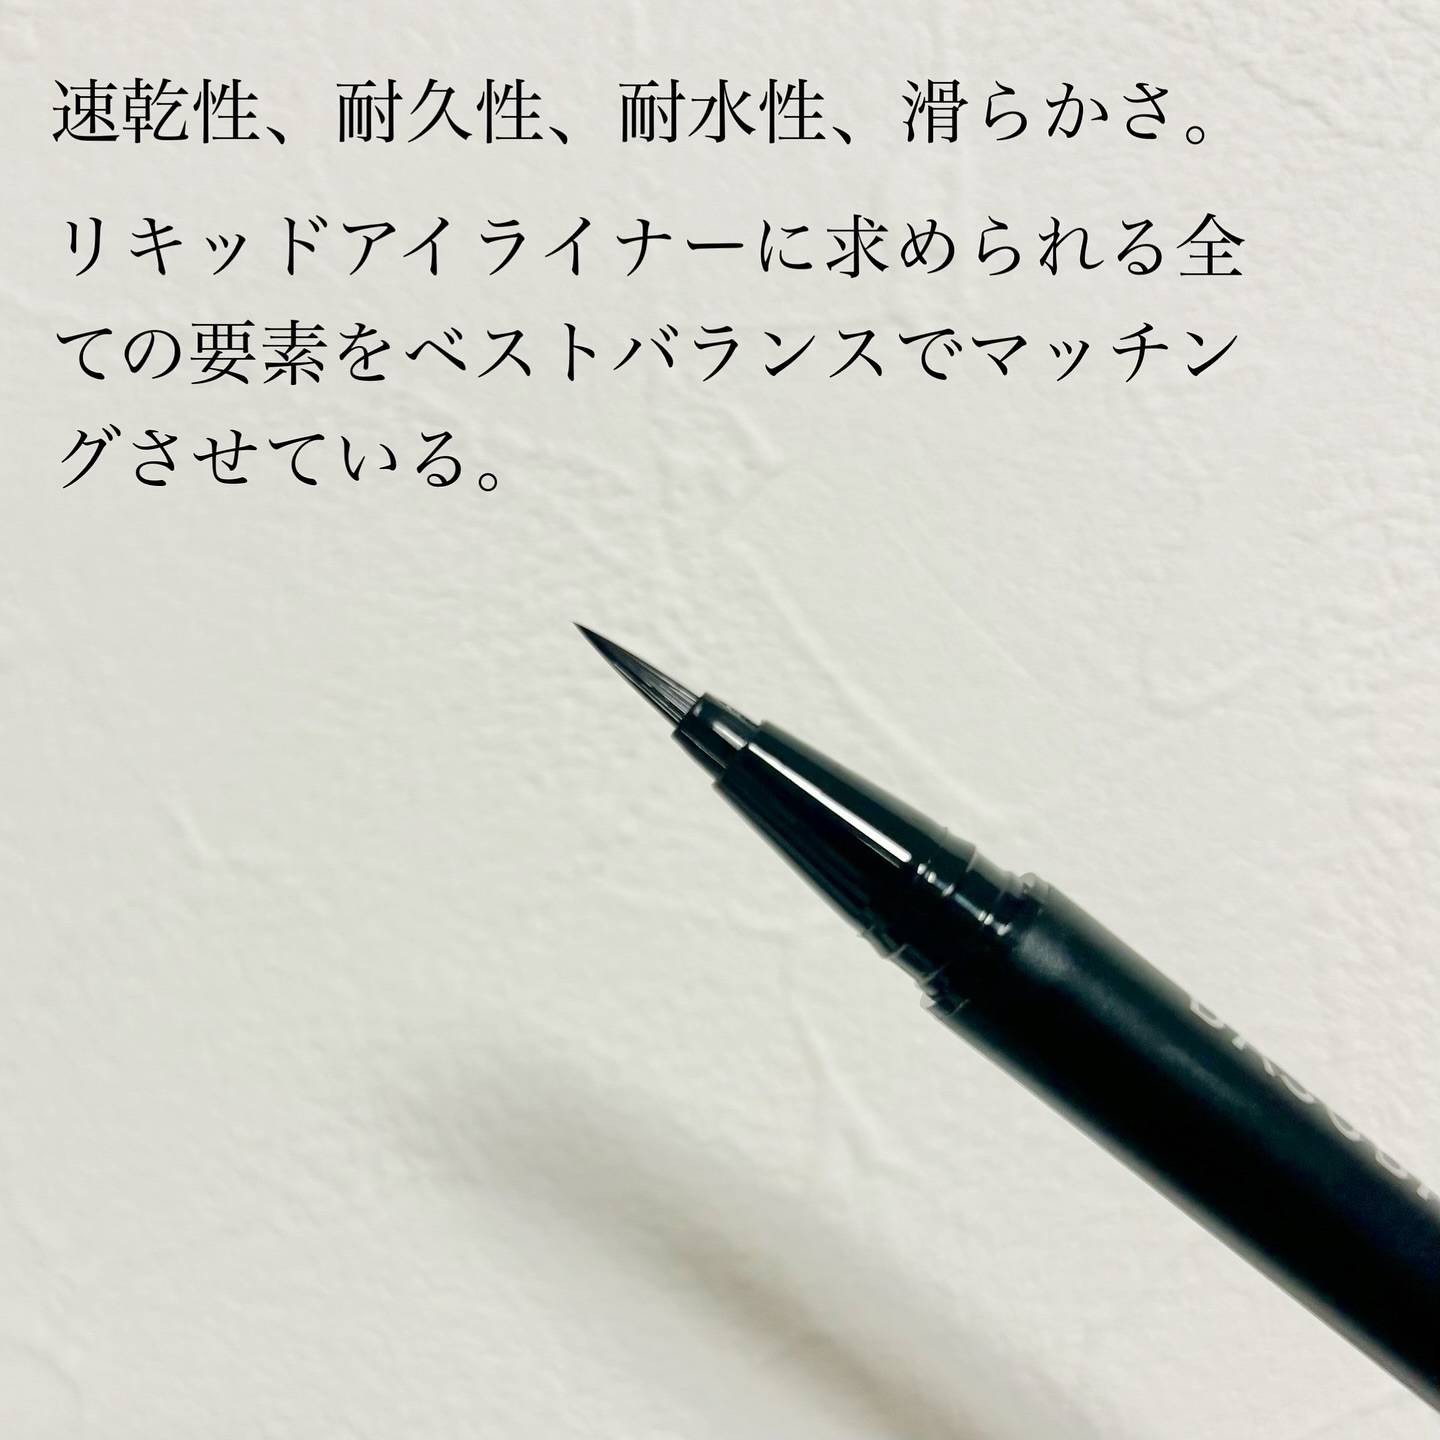 速乾性、耐久性、耐水性、滑らかさ。
リキッドアイライナーに求められる全
ての要素をベストバランスでマッチン
グさせている。